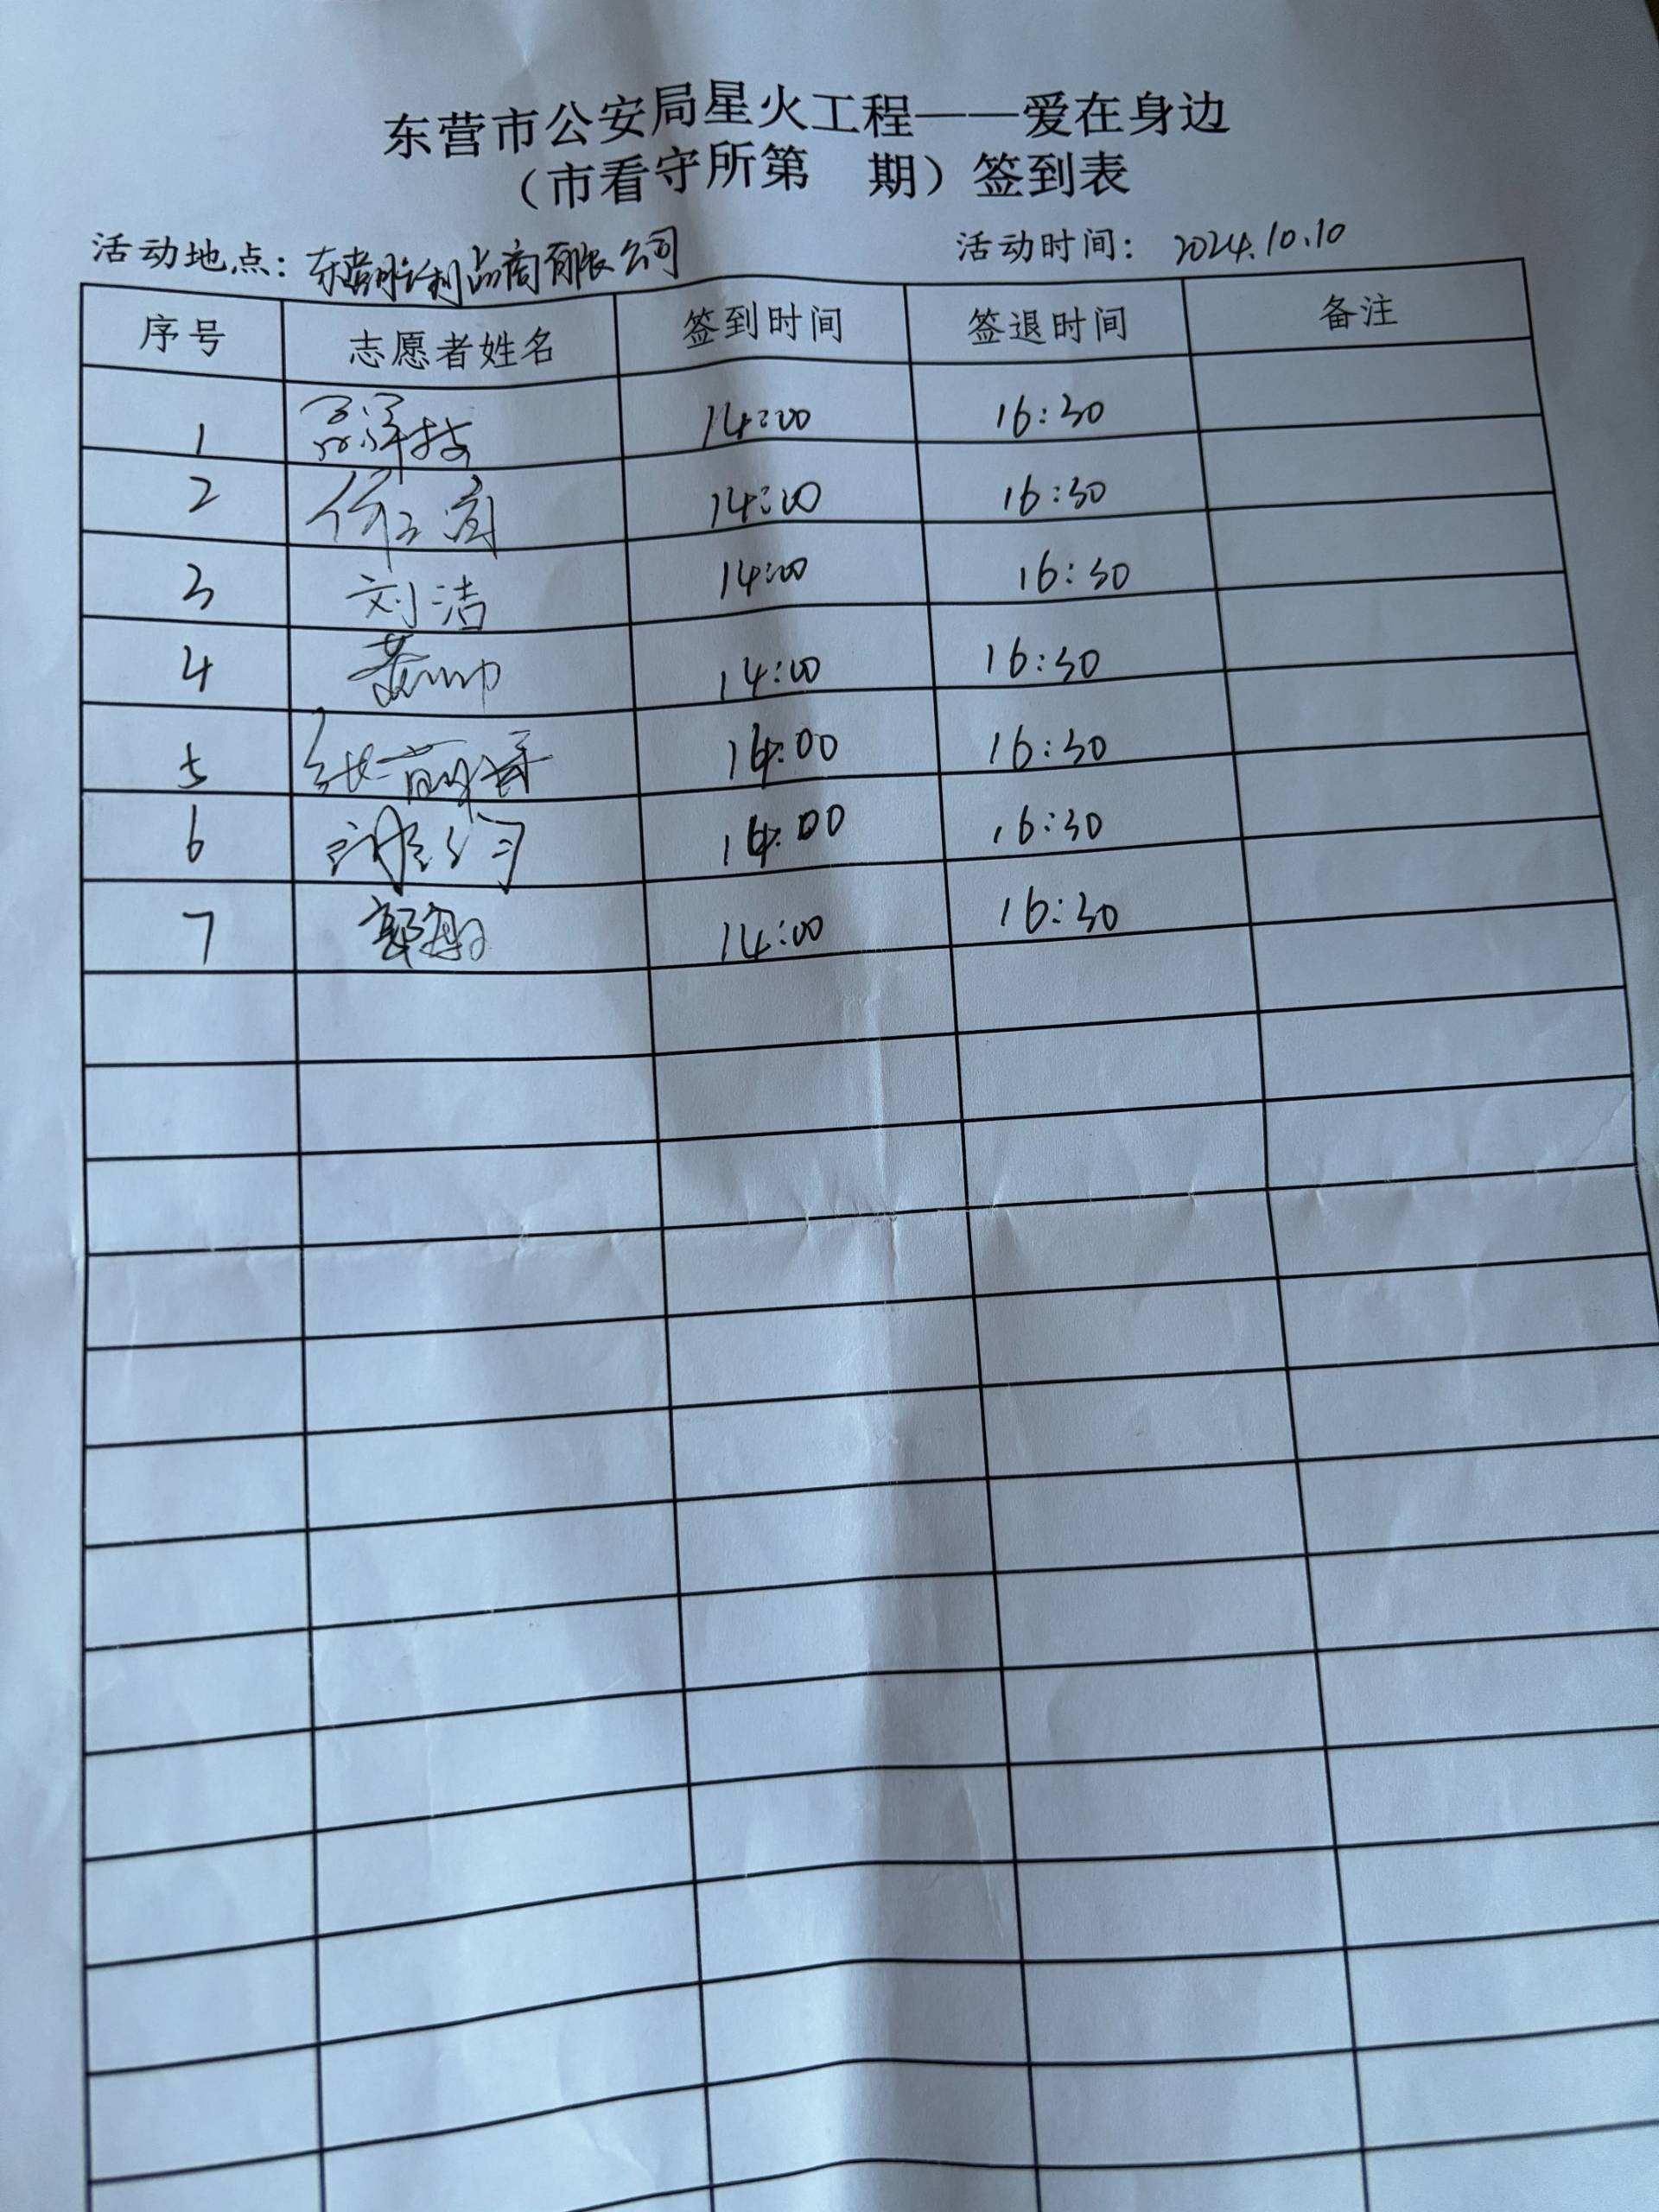 东营市公安局星火工程——爱在身边
（市看守所第 期）签到表
活动地点： 有限公司 活动时间： 2024.10.10
序号 志愿者姓名 签到时间 签退时间 备注
1 14:00 16:30
2 14:00 16:30
3 刘洁 14:00 16:30
4 黄帅 14:00 16:30
5 14:00 16:30
6 14:00 16:30
7 郭敏 14:00 16:30